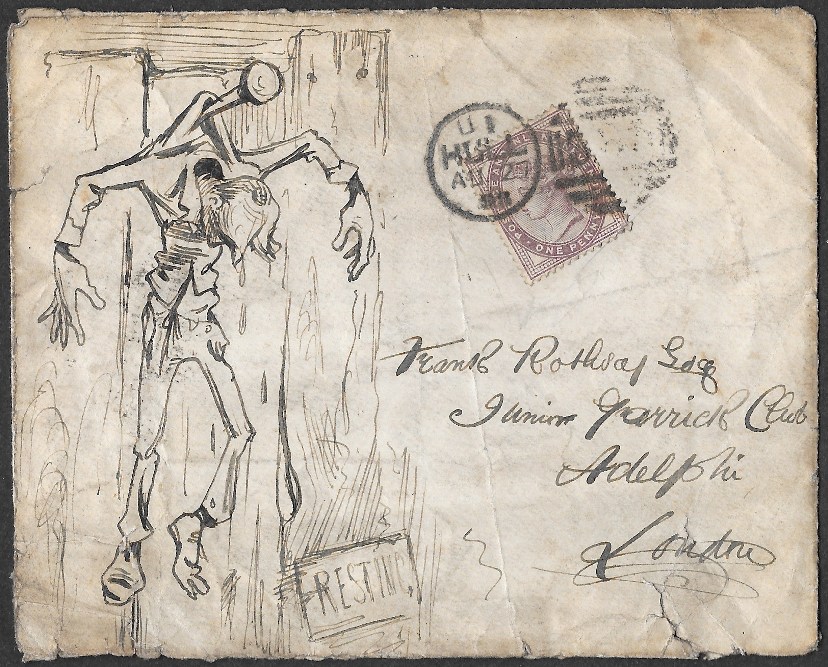 ONE PENNY
Frank Rothsay Esq
Junior Garrick Club
Adelphi
London
RESTING